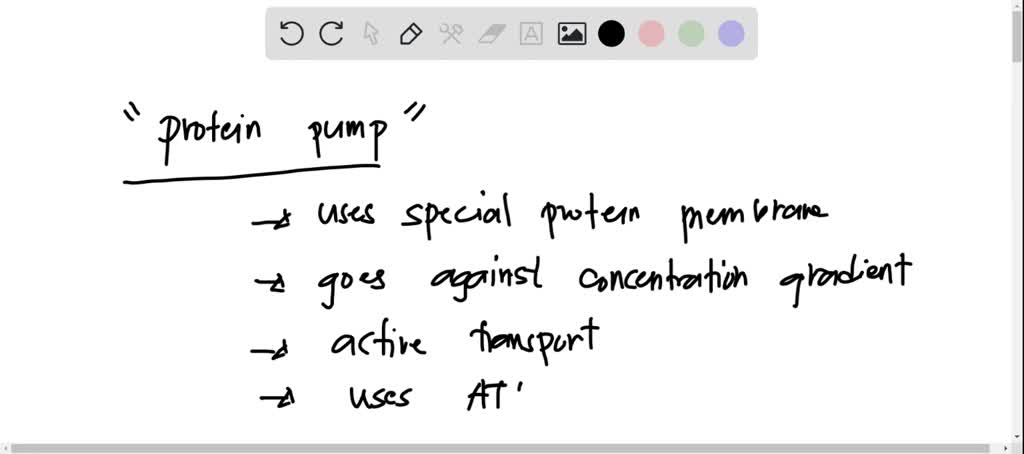 "protein pump"
→ uses special protein membrane
→ goes against concentration gradient
→ active transport
→ uses AT'